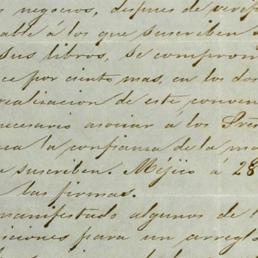 s negocios, despues de verif
able á los que suscriben
sus libros, se comprom
ce por ciento mas, en los dos
realizacion de este conven
necesario asociar á los Sres
ca la confianza de la ma
a suscriben. Méjico á 28
las firmas.
manifestado algunos de l
iciones para un arregl